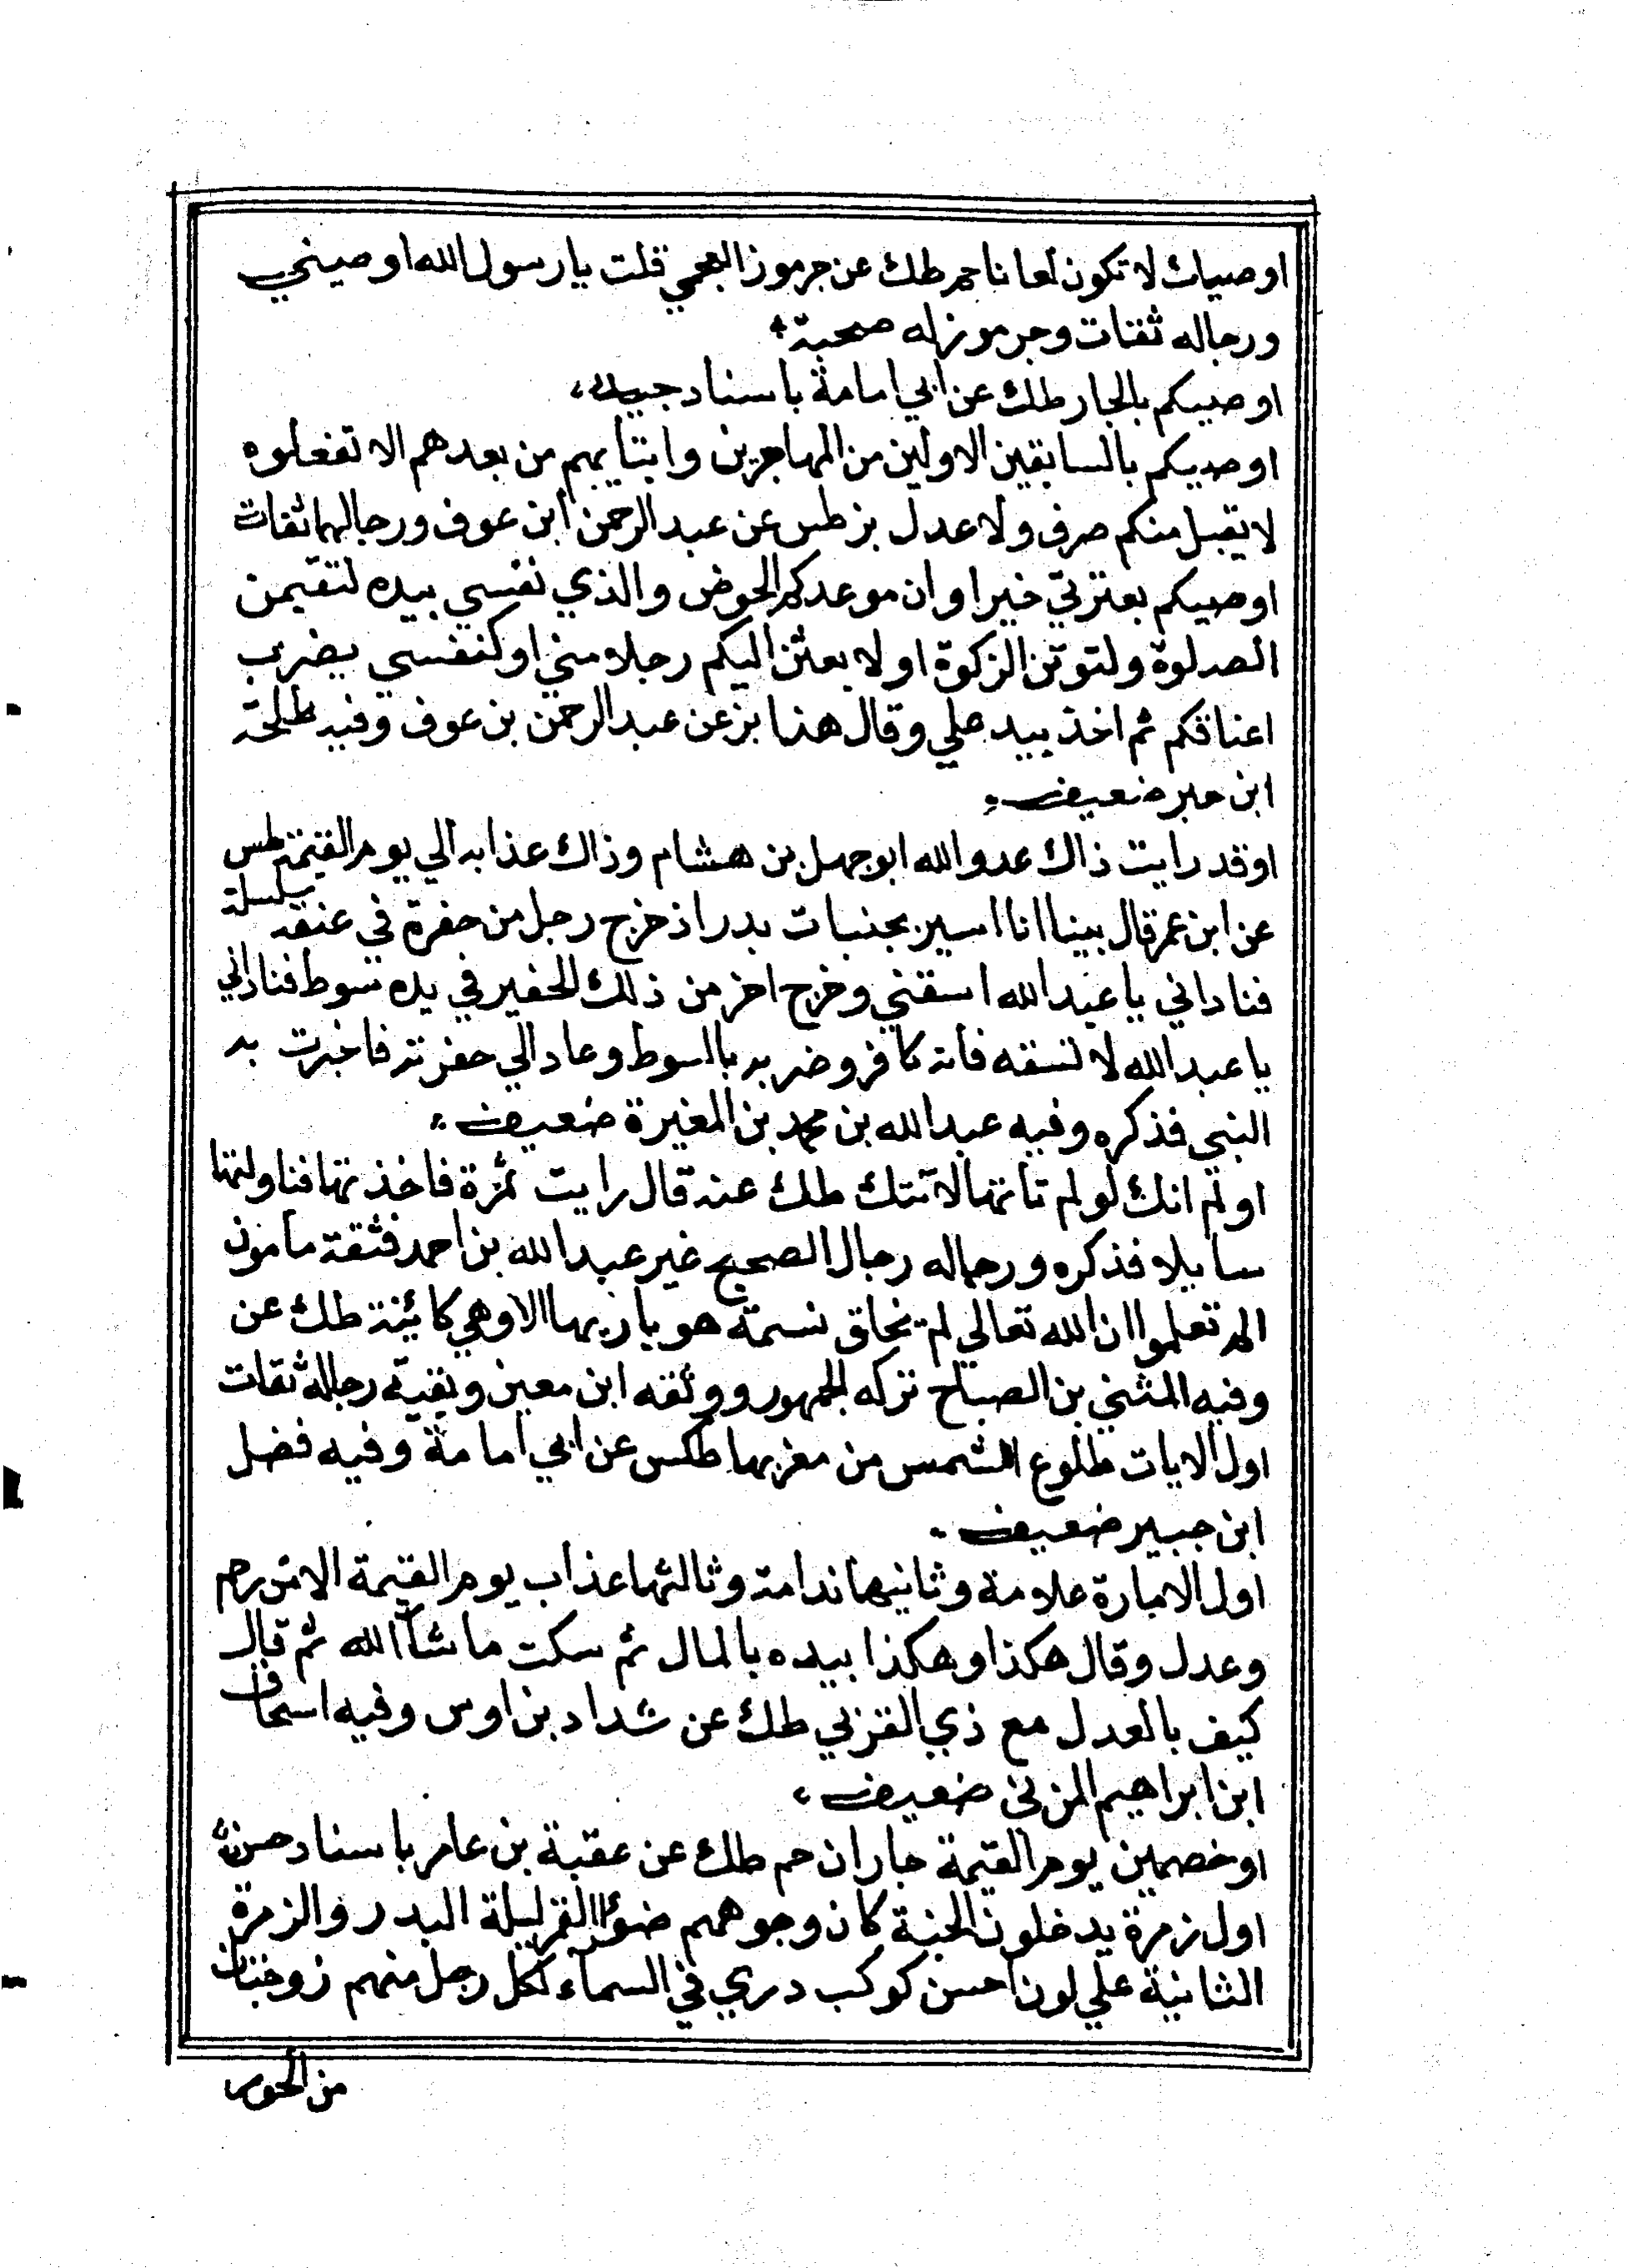 اوصيك لا تكون لعانا حم طك عن جرموز الهجمي قلت يا رسول الله اوصيني
ورجاله ثقات وجرموز له صحبة
اوصيكم بالجار طك عن ابي امامة باسناد جيد
اوصيكم بالسابقين الاولين من المهاجرين وابنايهم من بعدهم الا تفعلوه
لا يقبل منكم صرف ولا عدل بز طس عن عبد الرحمن ابن عوف ورجالهما ثقات
اوصيكم بعترتي خيرا وان موعدكم الحوض والذي نفسي بيده لتقيمن
الصلوة ولتوتن الزكوة او لابعثن اليكم رجلا مني او كنفسي يضرب
اعناقكم ثم اخذ بيد علي وقال هذا بز عن عبد الرحمن بن عوف وفيه طلحة
ابن جبر ضعيف
اوقد رايت ذاك عدو الله ابو جهل بن هشام وذاك عذابه الي يوم القيمة طس
عن ابن عمر قال بينا انا اسير بجنبات بدر اذ خرج رجل من حفرة في عنقه سلسلة
فناداني يا عبد الله اسقني وخرج اخر من ذلك الحفير في يده سوط فناداني
يا عبد الله لا تسقه فانه كافر وضربه بالسوط وعاد الي حفرته فاخبرت به
النبي فذكره وفيه عبد الله بن محمد بن المغيرة ضعيف
او لم انك لو لم تاتها لاتتك طك عنه قال رايت تمرة فاخذتها فناولتها
سايلا فذكره ورجاله رجال الصحيح غير عبد الله بن احمد فثقة مامون
الم تعلموا ان الله تعالي لم يخلق نسمة هو باريها الا وهي كائنة طك عن
وفيه المثني بن الصباح تركه الجمهور ووثقه ابن معين وبقية رجاله ثقات
اول الايات طلوع الشمس من مغربها طكس عن ابي امامة وفيه فضل
ابن جبير ضعيف
اول الامارة علامة وثانيها ندامة وثالثها عذاب يوم القيمة الا من رحم
وعدل وقال هكذا وهكذا بيده بالمال ثم سكت ما شآ الله ثم قال
كيف بالعدل مع ذي القربي طك عن شداد بن اوس وفيه اسحاق
ابن ابراهيم المزني ضعيف
او خصمين يوم القيمة جاران حم طك عن عقبة بن عامر باسناد حسن
اول زمرة يدخلون الجنة كان وجوههم ضوؤ القمر ليلة البدر والزمرة
الثانية علي لون احسن كوكب دري في السمآء لكل رجل منهم زوجتان
من الحور